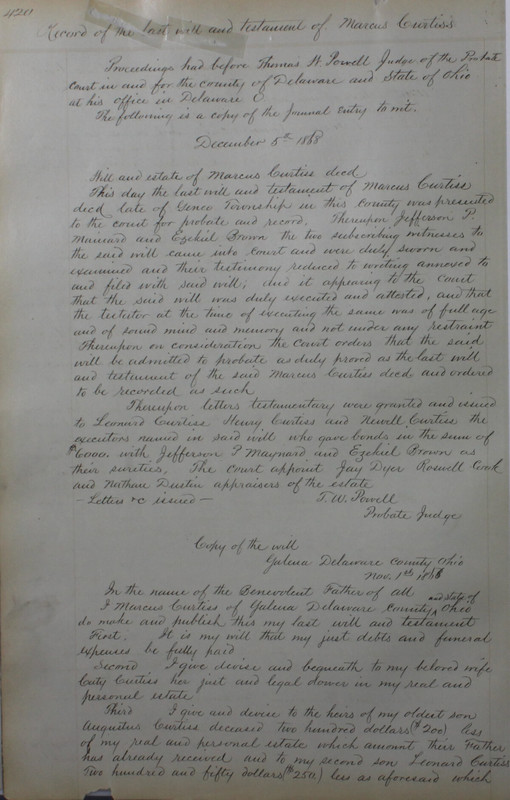 420
Record of the last will and testament of Marcus Curtiss
Proceedings had before Thomas W Powell Judge of the Probate
Court in and for the county of Delaware and State of Ohio
at his office in Delaware O
The following is a copy of the Journal Entry to wit.
December 5th 1868
Will and estate of Marcus Curtiss decd
This day the last will and testament of Marcus Curtiss
decd late of Genoa Township in this County was presented
to the court for probate and record. Thereupon Jefferson P.
Maynard and Ezekiel Brown the two subscribing witnesses to
the said will came into court and were duly sworn and
examined and their testimony reduced to writing annexed to
and filed with said will; and it appearing to the court
that the said will was duly executed and attested, and that
the testator at the time of executing the same was of full age
and of sound mind and memory and not under any restraint
Thereupon on consideration the Court orders that the said
will be admitted to probate as duly proved as the last will
and testament of the said Marcus Curtiss decd and ordered
to be recorded as such
Thereupon letters testamentary were granted and issued
to Leonard Curtiss Henry Curtiss and Newell Curtiss the
executors named in said will who gave bonds in the sum of
$6000. with Jefferson P Maynard and Ezekiel Brown as
their sureties. The Court appoint Jay Dyer Roswell Cook
and Nathan Dustin appraisers of the estate
- Letters &c issued - T. W. Powell
Probate Judge
Copy of the will
Galena Delaware County Ohio
Nov. 1st 1868
In the name of the Benevolent Father of all
I Marcus Curtiss of Galena Delaware County and State of Ohio
do make and publish this my last will and testament
First. It is my will that my just debts and funeral
expenses be fully paid
Second I give devise and bequeath to my beloved wife
Caty Curtiss her just and legal dower in my real and
personal estate
Third I give and devise to the heirs of my oldest son
Augustus Curtiss deceased two hundred dollars ($200) less
of my real and personal estate which amount their Father
has already received and to my second son Leonard Curtiss
Two hundred and fifty dollars ($250) less as aforesaid which